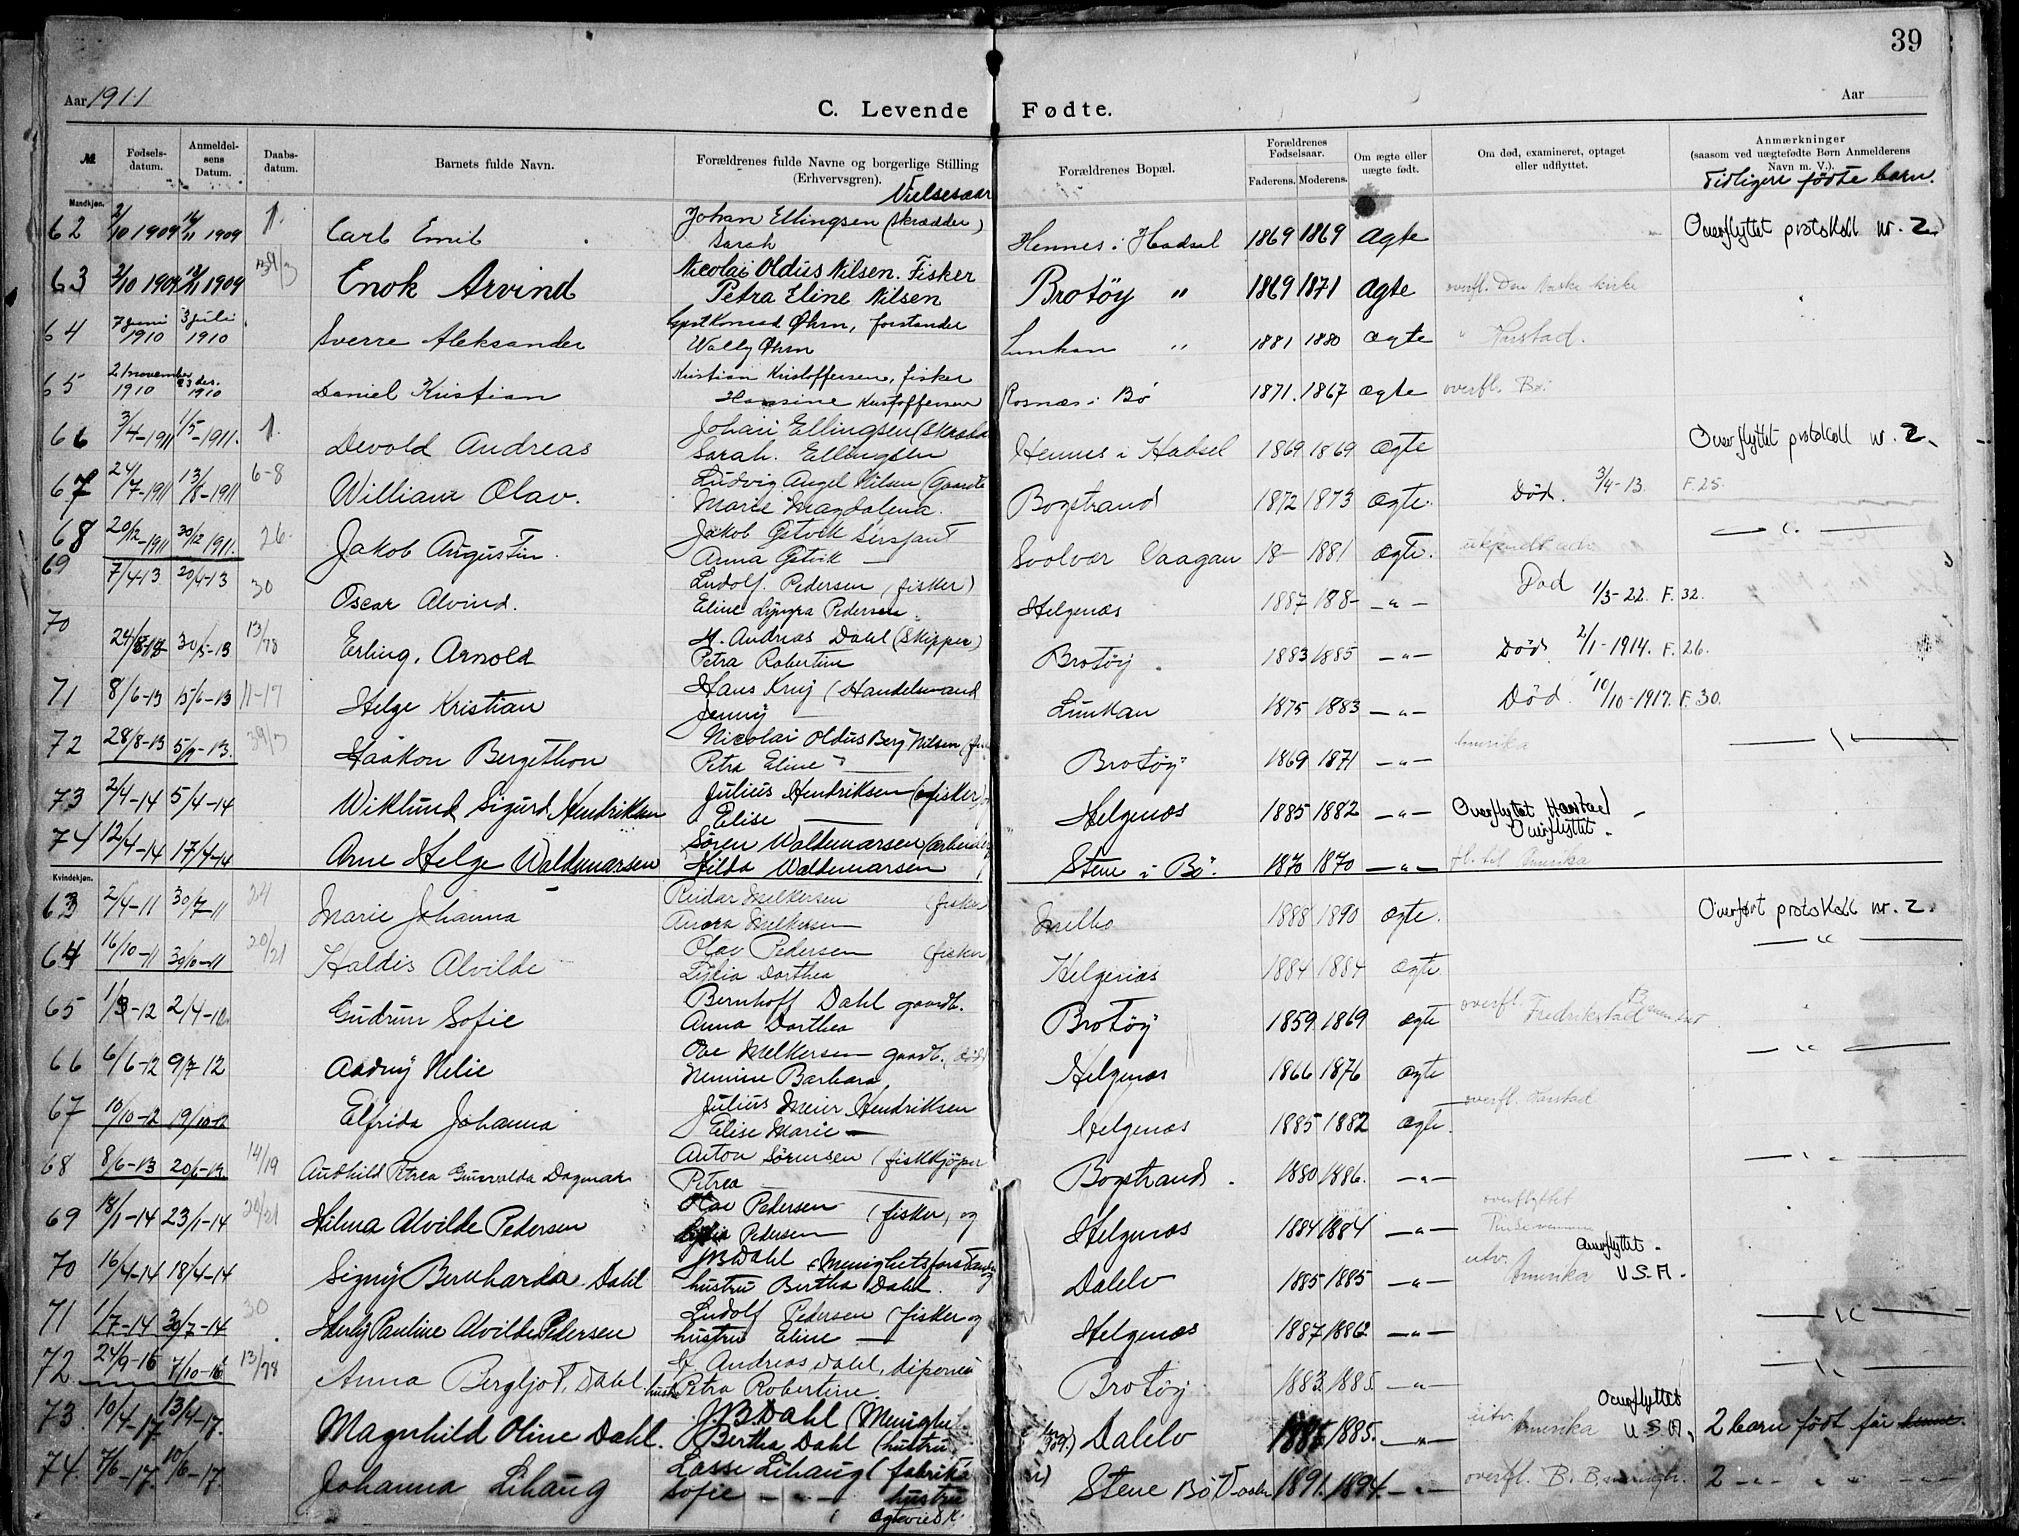 39
Aar 1911
C. Levende Fødte.
Aar
№ Fødselsdatum. Anmeldelsens Datum. Daabsdatum. Barnets fulde Navn. Forældrenes fulde Navne og borgerlige Stilling (Erhvervsgren). Forældrenes Bopæl. Forældrenes Fødselsaar. Faderens. Moderens. Om ægte eller uægte født. Om død, examineret, optaget eller udflyttet. Anmærkninger (saasom ved uægtefødte Børn Anmelderens Navn m. V.).
Vielsesaar
Tidligere fødte barn.
Mandkjøn.
62 2/10 1909 1909 1. Carl Emil Johan Ellingsen (skrædder) Hennes i Hadsel 1869 1869 Ægte Overflyttet protokoll nr. 2
Sarah
63 2/10 1909 1909 Enok Arvind Nicolai Oldus Nilsen. Fisker Brotøy " 1869 1871 Ægte overfl. Den norske kirke
Petra Eline Nilsen
64 7 juni 1910 3 juli 1910 Sverre Aleksander Konrad Øhrn, forstander Lunkan " 1881 1880 Ægte " Harstad.
Wally Øhrn
65 21 november 1910 23 des. 1910 Daniel Kristian Kristian Kristoffersen, fisker Rosnæs i Bø 1871. 1867 Ægte overfl. Bø
Hansine Kristoffersen
66 3/4-1911 1/5-1911. 1. Devold Andreas Johan Ellingsen Hennes i Hadsel 1869 1869 Ægte Overflyttet protokoll nr. 2.
Sarah. Ellingsen
67 24/7-1911 13/8-1911 6-8 William Olav. Ludvig Angel Nilsen Bogstrand 1872 1873 Ægte. Død. 3/4-13. F. 25.
Marie Magdalena.
68 20/12-1911 30/12 1911. 26. Jakob Augustin. Jakob Sersjant Svolvær Vaagan 18- 1881 Ægte.
Anna
69 7/4-13 20/4-13 30 Oscar Alvind. Ludolf. Pedersen (fisker) Helgenæs 1887 188- — " — Død 1/3-22. F. 32.
Eline Pedersen
70 30/5-13 13/78 Erling. Arnold M. Andreas Dahl (Skipper) Brotøy. 1883 1885 — " — Død 2/1-1914. F. 26.
Petra Robertine
71 8/6-13 15/6-13 11-17 Helge Kristian Hans (Handelsmand Lunkan 1875 1883 — " — Død. 10/10-1917. F. 30.
Jenny
72 28/8-13 5/9-13. 39/3 Haakon Bergethon Nicolai Oldus Berg Nilsen Brotøy 1869 1871 — " — Amerika
Petra Eline
73 2/4-14 5/4-14 Wiklund Sigurd Hendriksen Julius Hendriksen (fisker) Helgenæs 1885 1882 — " — Overflyttet Harstad
Elise — Overflyttet.
74 12/4-14 17/4-14 Arne Helge Waldemarsen Søren Waldemarsen Stene i Bø. 1870 1870 — " — fl. til Amerika
Hilda Waldemarsen
Kvindekjøn.
63 2/4-11 30/7-11 24 Marie Johanna Reidar Melkersen (fisker) Melbo 1888 1890 Ægte. Overført protokoll nr. 2.
Melkersen
64 16/10-11 30/10-11 20/21 Haldis Alvilde Olav Pedersen (fisker Helgenæs 1884 1884 Ægte — " —
Lydia Dorthea
65 1/3-12 2/4-12 Gudrun Sofie Bernhoff Dahl gaardb. Brotøy 1859 1869 Ægte overfl. Fredrikstad
Anna Dorthea
66 6/6-12 9/7 12 Aadny Nelie Ove Melkersen gaardb. Helgenæs 1866 1876 Ægte — " —
Barbara
67 10/10-12 19/10-12 Elfrida Johanna Julius Meier Hendriksen Helgenæs 1885 1882 Ægte. overfl. Harstad
Elise Marie —
68 8/6-13 20/6-13. 14/19 Audhild Petrea Gunvalda Dagmar Anton Sørensen (fiskkjøper Bogstrand. 1880 1886. — " —
Petrea
69 18/1-14 23/1-14 20/21 Hilma Alvilde Pedersen Olav Pedersen (fisker, og Helgenæs 1884 1884 — " — overflyttet
Lydia Pedersen
70 16/4-14 18/4-14 Signy Bernharda Dahl J B Dahl Dalelv 1885 1885 — " — utv. Amerika Overflyttet. U.S.A.
hustru Bertha Dahl.
71 1/7-14 30/7-14 30 Herly Pauline Alvilde Pedersen Ludolf Pedersen (fisker og Helgenæs 1887 1882 — " —
hustru Eline —
72. 24/9-16 7/10-16 13/78 Anna Bergljot. Dahl Andreas Dahl, Brotøy 1883. 1885. — " —
Petra Robertine.
73. 10/4-17. 13/4-17. Magnhild Oline Dahl. J. B Dahl Dalelv 1885 1885. — " — utv. Amerika Overflyttet U.S.A. 2 barn født før
Bertha Dahl (hustru.
74. 7/6-17. 10/6-17. Johanna Lihaug Lasse Lihaug Stene Bø 1891. 1894. — " — overfl. B. 2 — " —
Sofie — " — hustru